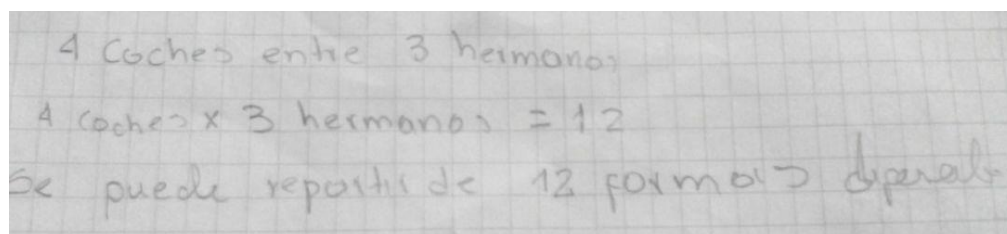 4 coches entre 3 hermanos
4 coches x 3 hermanos = 12
Se puede repartir de 12 formas